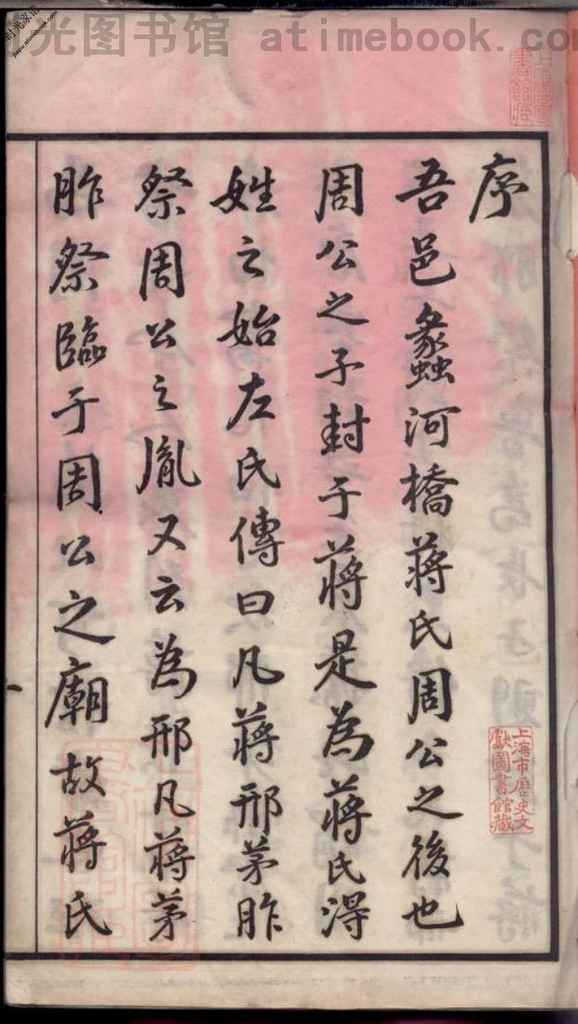 光图书馆 atimebook.com
序
吾邑蠡河橋蔣氏周公之後也
周公之子封于蔣是為蔣氏得
姓之始左氏傳曰凡蔣邢茅胙
祭周公之胤又云為邢凡蔣茅
胙祭臨于周公之廟故蔣氏
上海市歷史文
獻圖書館藏